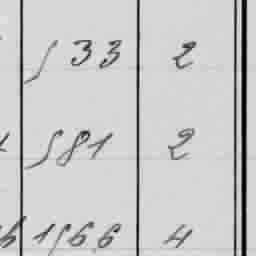 533 2
581 2
1566 4